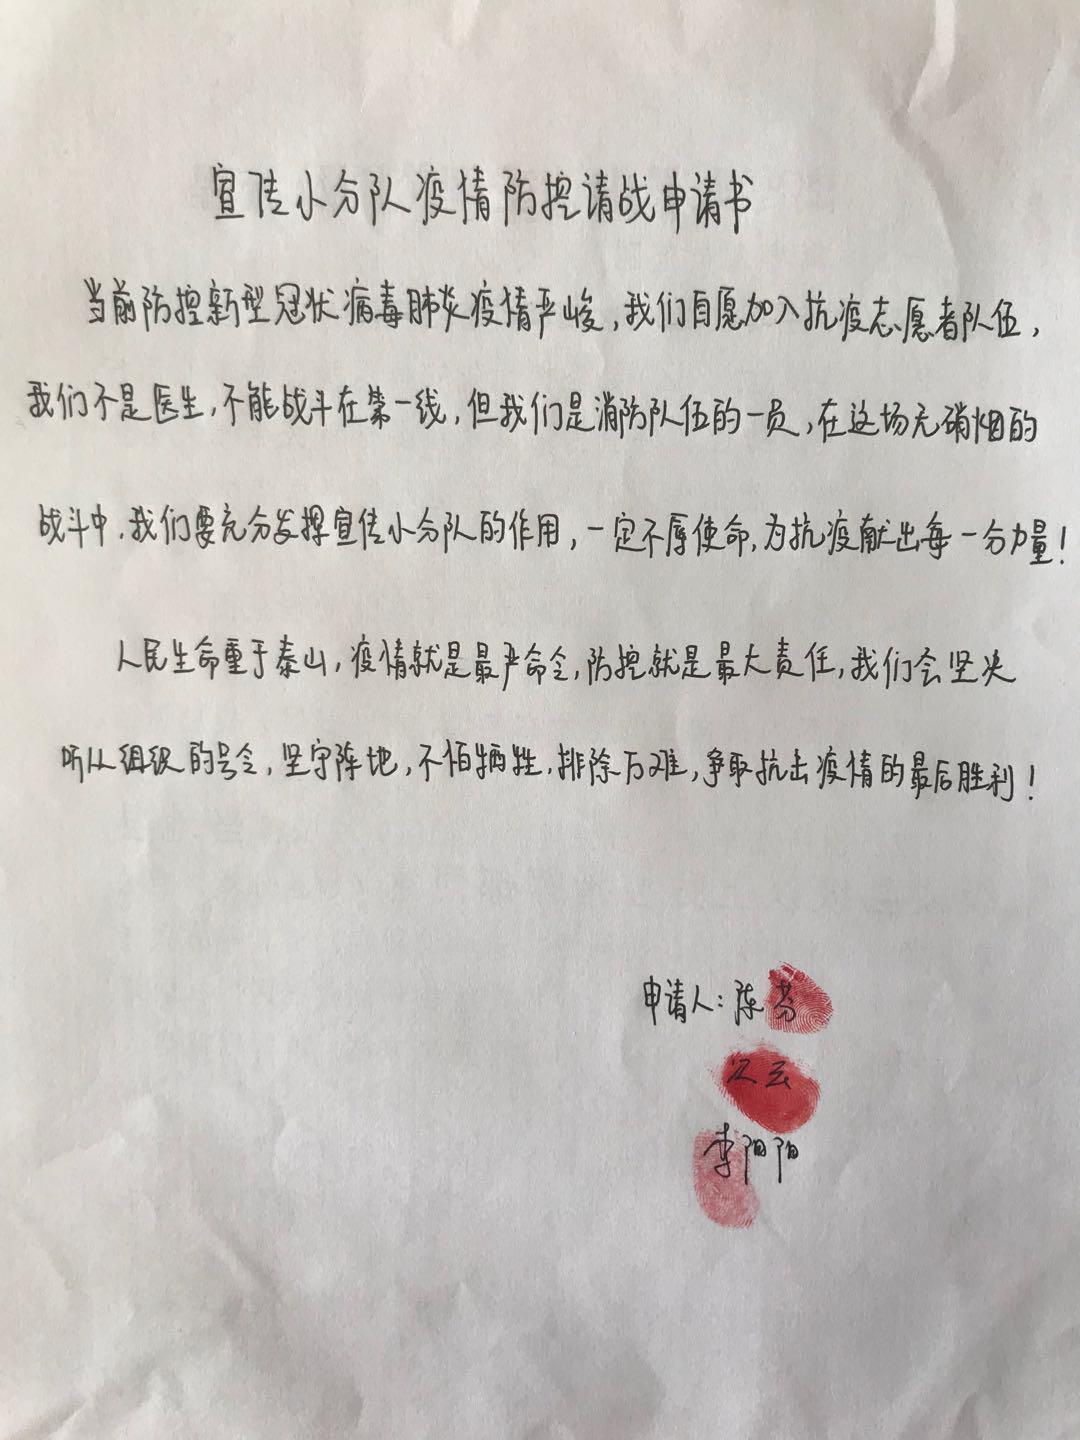 宣传小分队疫情防控请战申请书
当前防控新型冠状病毒肺炎疫情严峻，我们自愿加入抗疫志愿者队伍，
我们不是医生，不能战斗在第一线，但我们是消防队伍的一员，在这场无硝烟的
战斗中，我们要充分发挥宣传小分队的作用，一定不辱使命，为抗疫献出每一分力量！
人民生命重于泰山，疫情就是最严命令，防控就是最大责任，我们会坚决
听从组织的号令，坚守阵地，不怕牺牲，排除万难，争取抗击疫情的最后胜利！
申请人：陈芬
江云
李阳阳